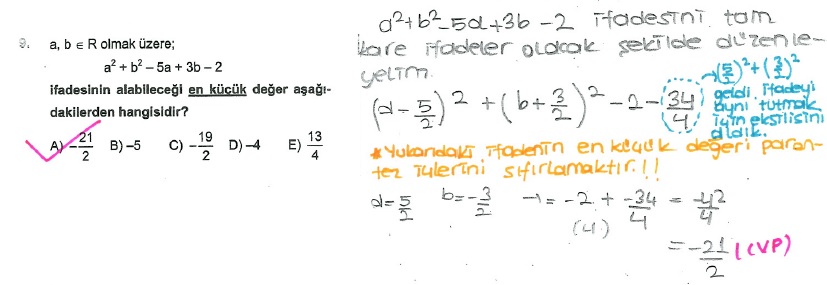 9. a, b ∈ R olmak üzere;
a² + b² – 5a + 3b – 2
ifadesinin alabileceği en küçük değer aşağı-
dakilerden hangisidir?
A) –21/2 B) –5 C) –19/2 D) –4 E) 13/4
a²+b²-5a+3b-2 ifadesini tam
kare ifadeler olacak şekilde düzenle-
yelim.
(a-5/2)² + (b+3/2)² -2 - 34/4
→(5/2)²+(3/2)²
geldi. İfadeyi
aynı tutmak
için eksilisini
aldık.
* Yukarıdaki ifadenin en küçük değeri paran-
tez içlerini sıfırlamaktır.!!
a=5/2 b=-3/2 → = -2 + -34/4 = -42/4
(4)
= -21/2 (CVP)